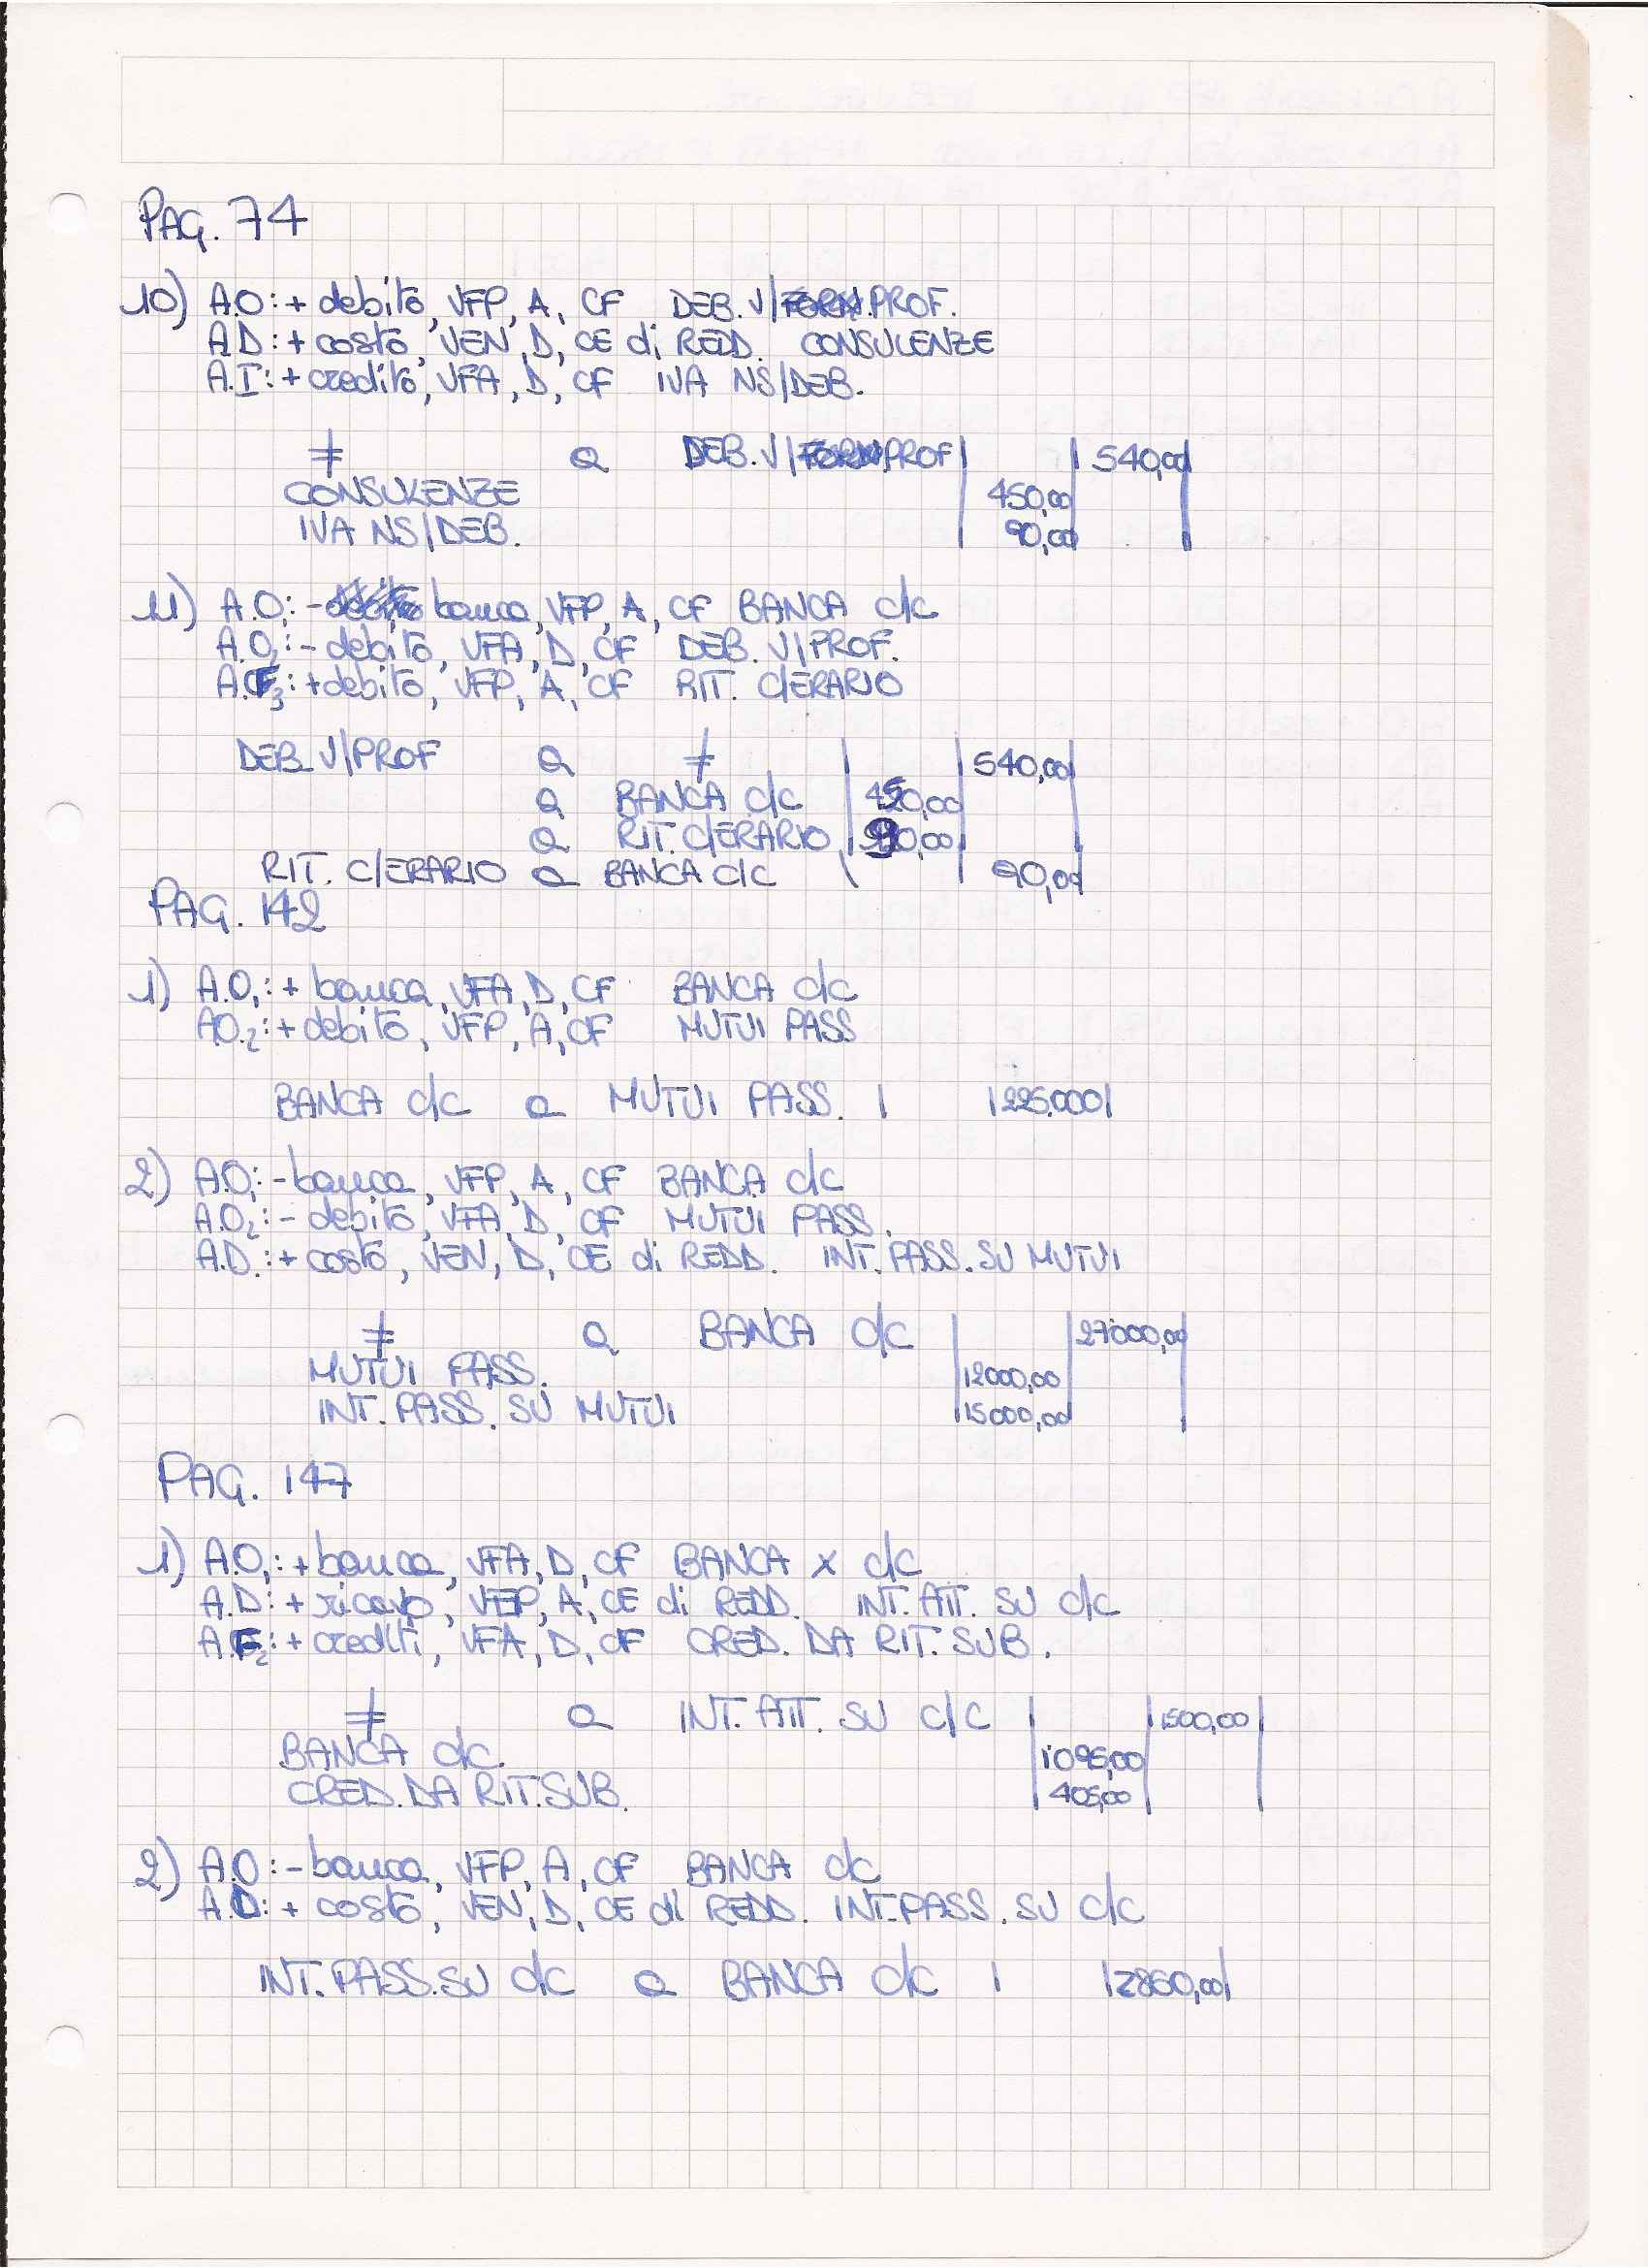 PAG. 74
10) A.O: + debito, VFP, A, CF DEB. V/ PROF.
A.D: + costo, VEN, D, CE di REDD. CONSULENZE
A.I: + credito, VFA, D, CF IVA NS/DEB.
≠ a DEB. V/ PROF 540,00
CONSULENZE 450,00
IVA NS/DEB. 90,00
11) A.O1: - banca, VFP, A, CF BANCA c/c
A.O2: - debito, VFA, D, CF DEB. V/PROF.
A.F3: + debito, VFP, A, CF RIT. C/ERARIO
DEB. V/PROF a ≠ 540,00
a BANCA c/c 450,00
a RIT. C/ERARIO 90,00
RIT. C/ERARIO a BANCA c/c 90,00
PAG. 142
1) A.O1: + banca, VFA, D, CF BANCA c/c
A.O.2: + debito, VFP, A, CF MUTUI PASS
BANCA c/c a MUTUI PASS. 225.000
2) A.O1: - banca, VFP, A, CF BANCA c/c
A.O2: - debito, VFA, D, CF MUTUI PASS.
A.D.: + costo, VEN, D, CE di REDD. INT. PASS. SU MUTUI
≠ a BANCA c/c 27000,00
MUTUI PASS. 12000,00
INT. PASS. SU MUTUI 15000,00
PAG. 147
1) A.O1: + banca, VFA, D, CF BANCA X c/c
A.D: + ricavo, VEP, A, CE di REDD. INT. ATT. SU c/c
A.F2: + crediti, VFA, D, CF CRED. DA RIT. SUB.
≠ a INT. ATT. SU c/c 1500,00
BANCA c/c. 1095,00
CRED. DA RIT. SUB. 405,00
2) A.O: - banca, VFP, A, CF BANCA c/c
A.D: + costo, VEN, D, CE di REDD. INT. PASS. SU c/c
INT. PASS. SU c/c a BANCA c/c 2860,00